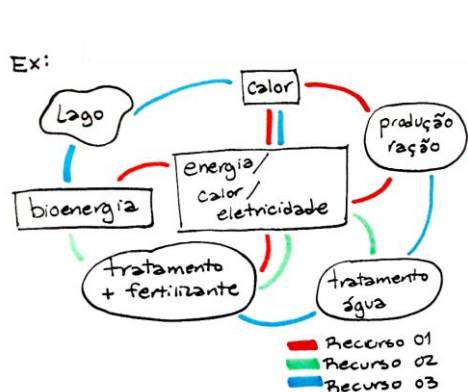 Ex:
calor
Lago
produção
ração
energia/
calor/
eletricidade
bioenergia
tratamento
+ fertilizante
tratamento
água
Recurso 01
Recurso 02
Recurso 03